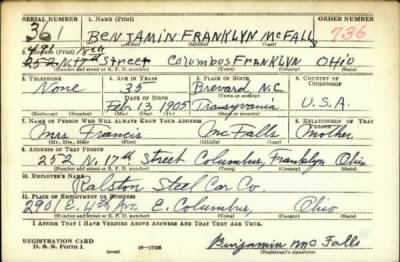 SERIAL NUMBER 1. NAME (Print)
361 BENJAMIN FRANKLYN McFALLS 736
(First) (Middle) (Last)
421 18th
252 N. 17th Street Columbus FRANKLYN OHIO
(Number and street or R. F. D. number) (Town) (County) (State)
3. TELEPHONE 4. AGE IN YEARS 5. PLACE OF BIRTH 6. COUNTRY OF CITIZENSHIP
None 35 Brevard N.C.
DATE OF BIRTH (Town or county)
Feb. 13 1905 Transylvania U.S.A.
(Mo.) (Day) (Yr.) (State or country)
7. NAME OF PERSON WHO WILL ALWAYS KNOW YOUR ADDRESS 8. RELATIONSHIP OF THAT PERSON
Mrs Francis McFalls Mother
(Mr., Mrs., Miss) (First) (Middle) (Last)
9. ADDRESS OF THAT PERSON
252 N. 17th Street Columbus, Franklyn Ohio
(Number and street or R. F. D. number) (Town) (County) (State)
10. EMPLOYER'S NAME
Ralston Steel Car Co.
11. PLACE OF EMPLOYMENT OR BUSINESS
2901 E. 4th Ave E. Columbus, Ohio
(Number and street or R. F. D. number) (Town) (County) (State)
I AFFIRM THAT I HAVE VERIFIED ABOVE ANSWERS AND THAT THEY ARE TRUE.
REGISTRATION CARD
D. S. S. Form 1 Benjamin McFalls
(Registrant's signature)